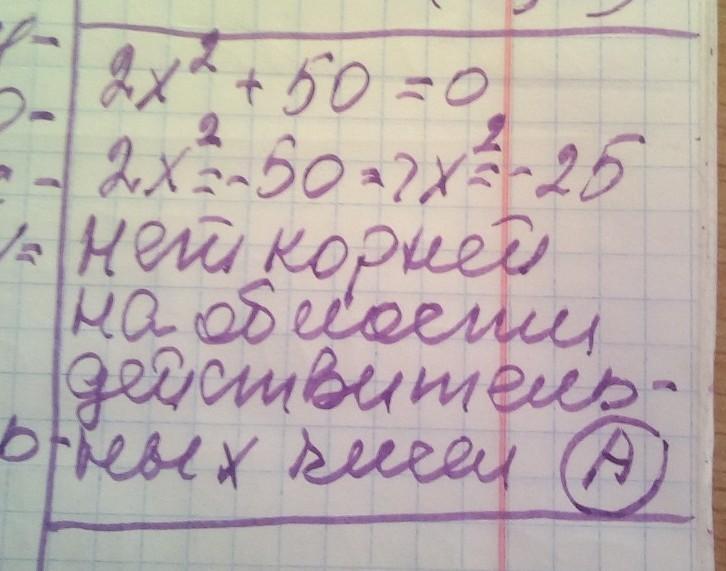 2x² + 50 = 0
2x² = -50 => x² = -25
нет корней
на области
действитель-
ных чисел А